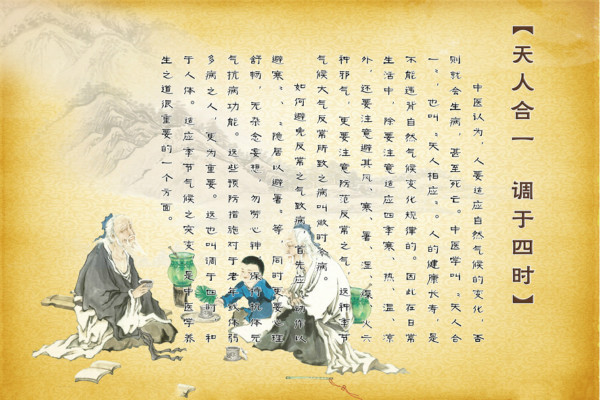 【天人合一 调于四时】
中医认为，人要适应自然气候的变化，否
则就会生病，甚至死亡。中医学叫“天人合
一”，也叫“天人相应”。人的健康长寿，是
不能违背自然气候变化规律的。因此在日常
生活中，除要注意适应四季寒、热、温、凉
外，还要注意避其风、寒、暑、湿、燥、火六
种邪气，更要注意防范反常之气，这种季节
气候大气反常所致之病叫做时令病。
如何避免反常之气致病，首先应“动作以
避寒”、“隐居以避暑”等，同时更要心理
舒畅，无杂念妄想，勿劳心神，保持机体元
气抗病功能。这些预防措施对于老年或体弱
多病之人，更为重要。这也叫调于四时，和
于人体。适应季节气候之突变，是中医学养
生之道很重要的一个方面。